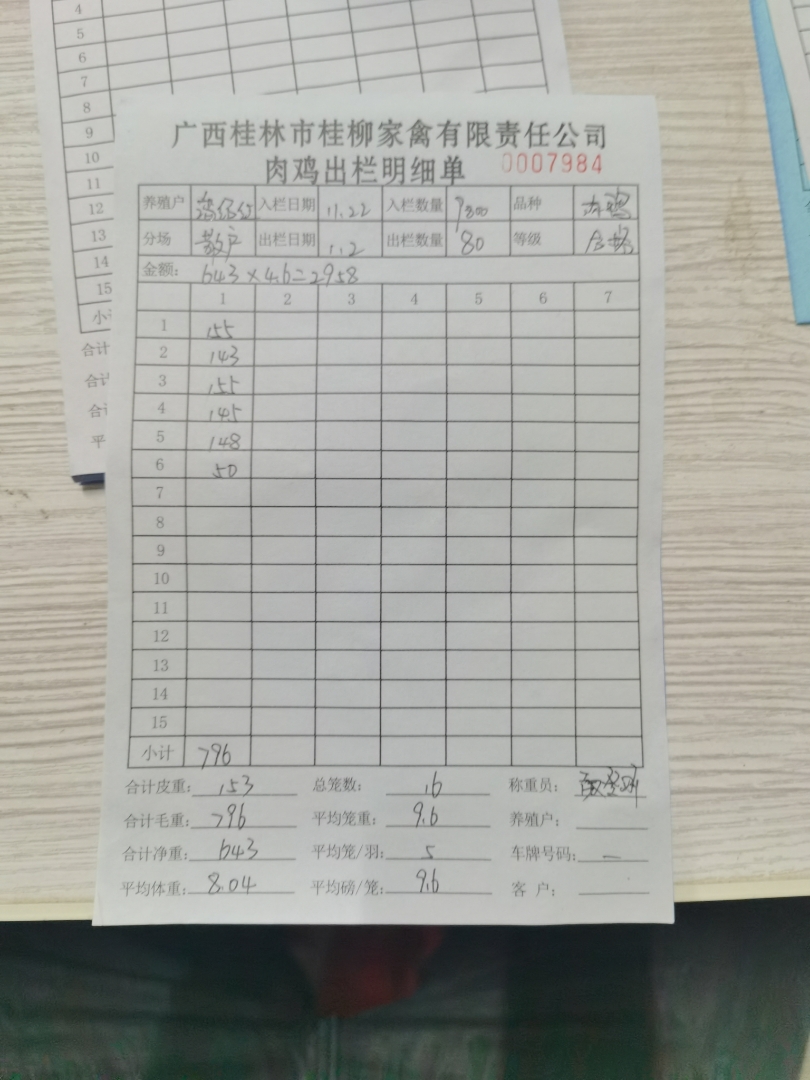 4
5
6
7
8
9
10
11
12
13
14
15
小
合计
合计
合
平
广西桂林市桂柳家禽有限责任公司
肉鸡出栏明细单 0007984
养殖户 入栏日期 11.22 入栏数量 9800 品种 肉鸡
分场 散户 出栏日期 1.2 出栏数量 80 等级 合格
金额: 643×4.6=2958
1 2 3 4 5 6 7
1 155
2 143
3 155
4 145
5 148
6 50
7
8
9
10
11
12
13
14
15
小计 796
合计皮重: 153 总笼数: 16 称重员:
合计毛重: 796 平均笼重: 9.6 养殖户:
合计净重: 643 平均笼/羽: 5 车牌号码: —
平均体重: 8.04 平均磅/笼: 9.6 客 户: